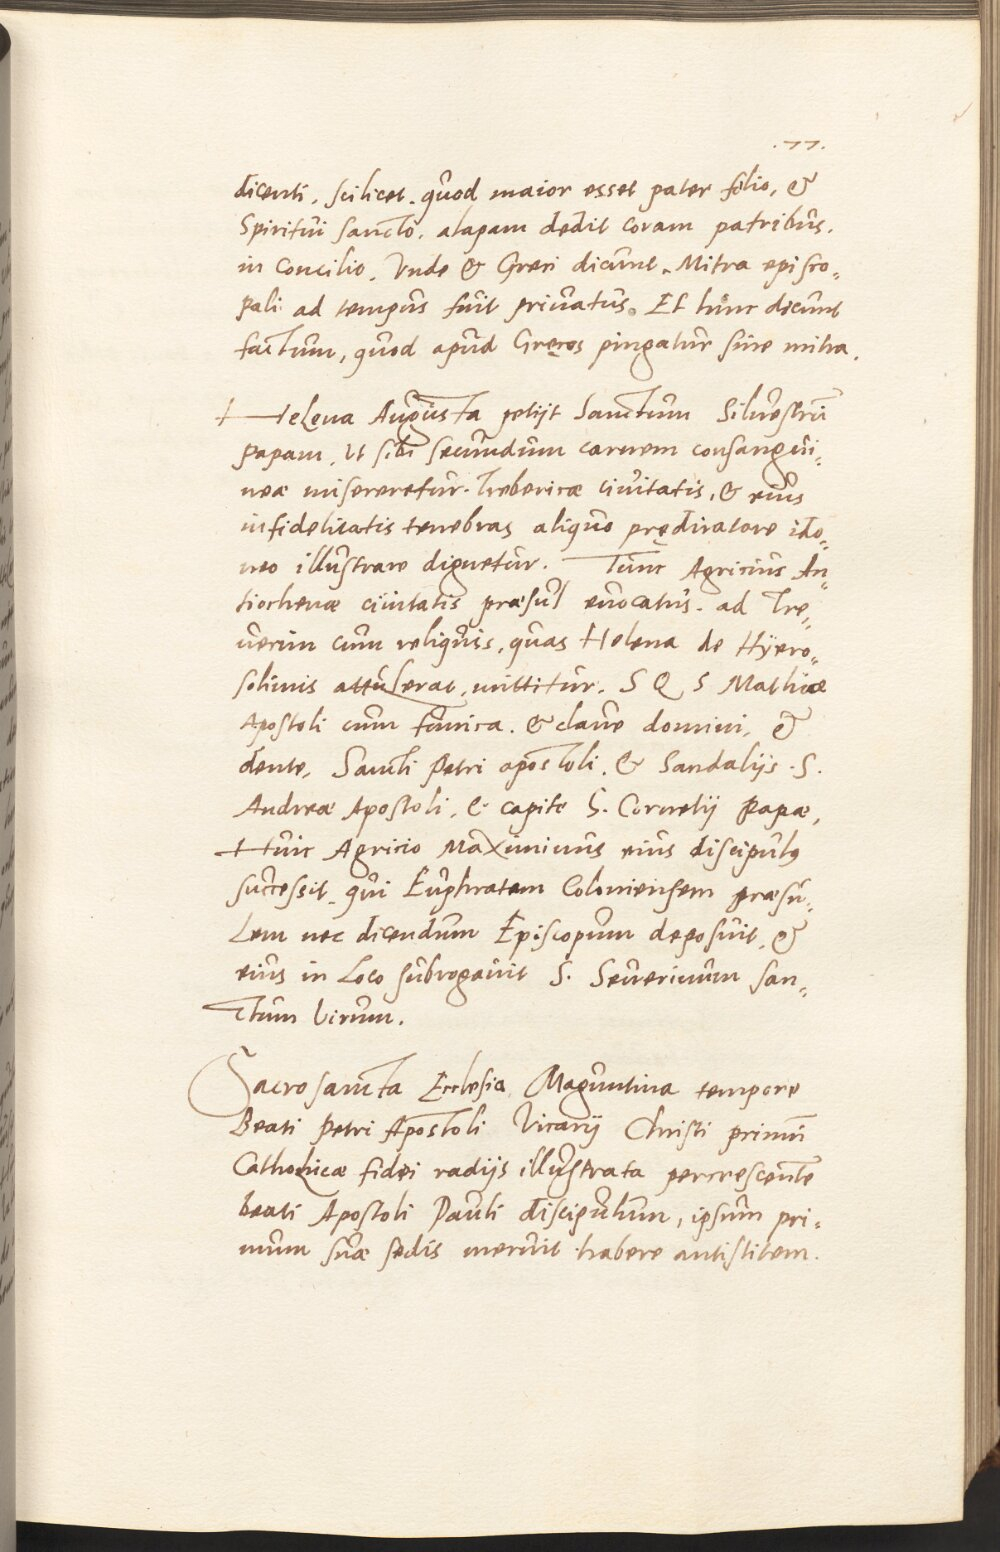 .77.
dicenti, scilicet. quod maior esset pater filio, &
Spiritui sancto. alapam dedit coram patribus.
in Concilio. Vnde & Greci dicunt. Mitra episco=
pali ad tempus fuit priuatus. Et hinc dicunt
factum, quod apud Gręcos pingatur sine mitra.
Helena Augusta petijt Sanctum Siluestrū
Papam, Ut sibi secundum carnem consangui=
neæ misereretur. Trebericæ ciuitatis, & eius
infidelitatis tenebras aliquo prędicatore ido=
neo illustrare dignetur. Tunc Agricius An=
tiochenæ ciuitatis præsul euocatus. ad Tre=
uerim cum reliquis, quas Helena de Hyero=
solimis attulerat, mittitur. S Q S Mathiæ
Apostoli cum tunica. & claue domini, &
dente, Sancti Petri apostoli. & Sandalijs. S.
Andreæ Apostoli, & capite S. Cornelij Papæ,
Huic Agricio Maximinus eius discipulus
successit, qui Euphratem Coloniensem præsu=
lem nec dicendum Episcopum deposuit, &
eius in Loco subrogauit S. Seuerinum san=
ctum virum.
Sacrosancta Ecclesia Maguntina tempore
Beati Petri Apostoli Vicarij Christi primū
Catholicæ fidei radijs illustrata percrescente
beati Apostoli Pauli discipulum, ipsum pri=
mum suæ sedis meruit habere antistitem.